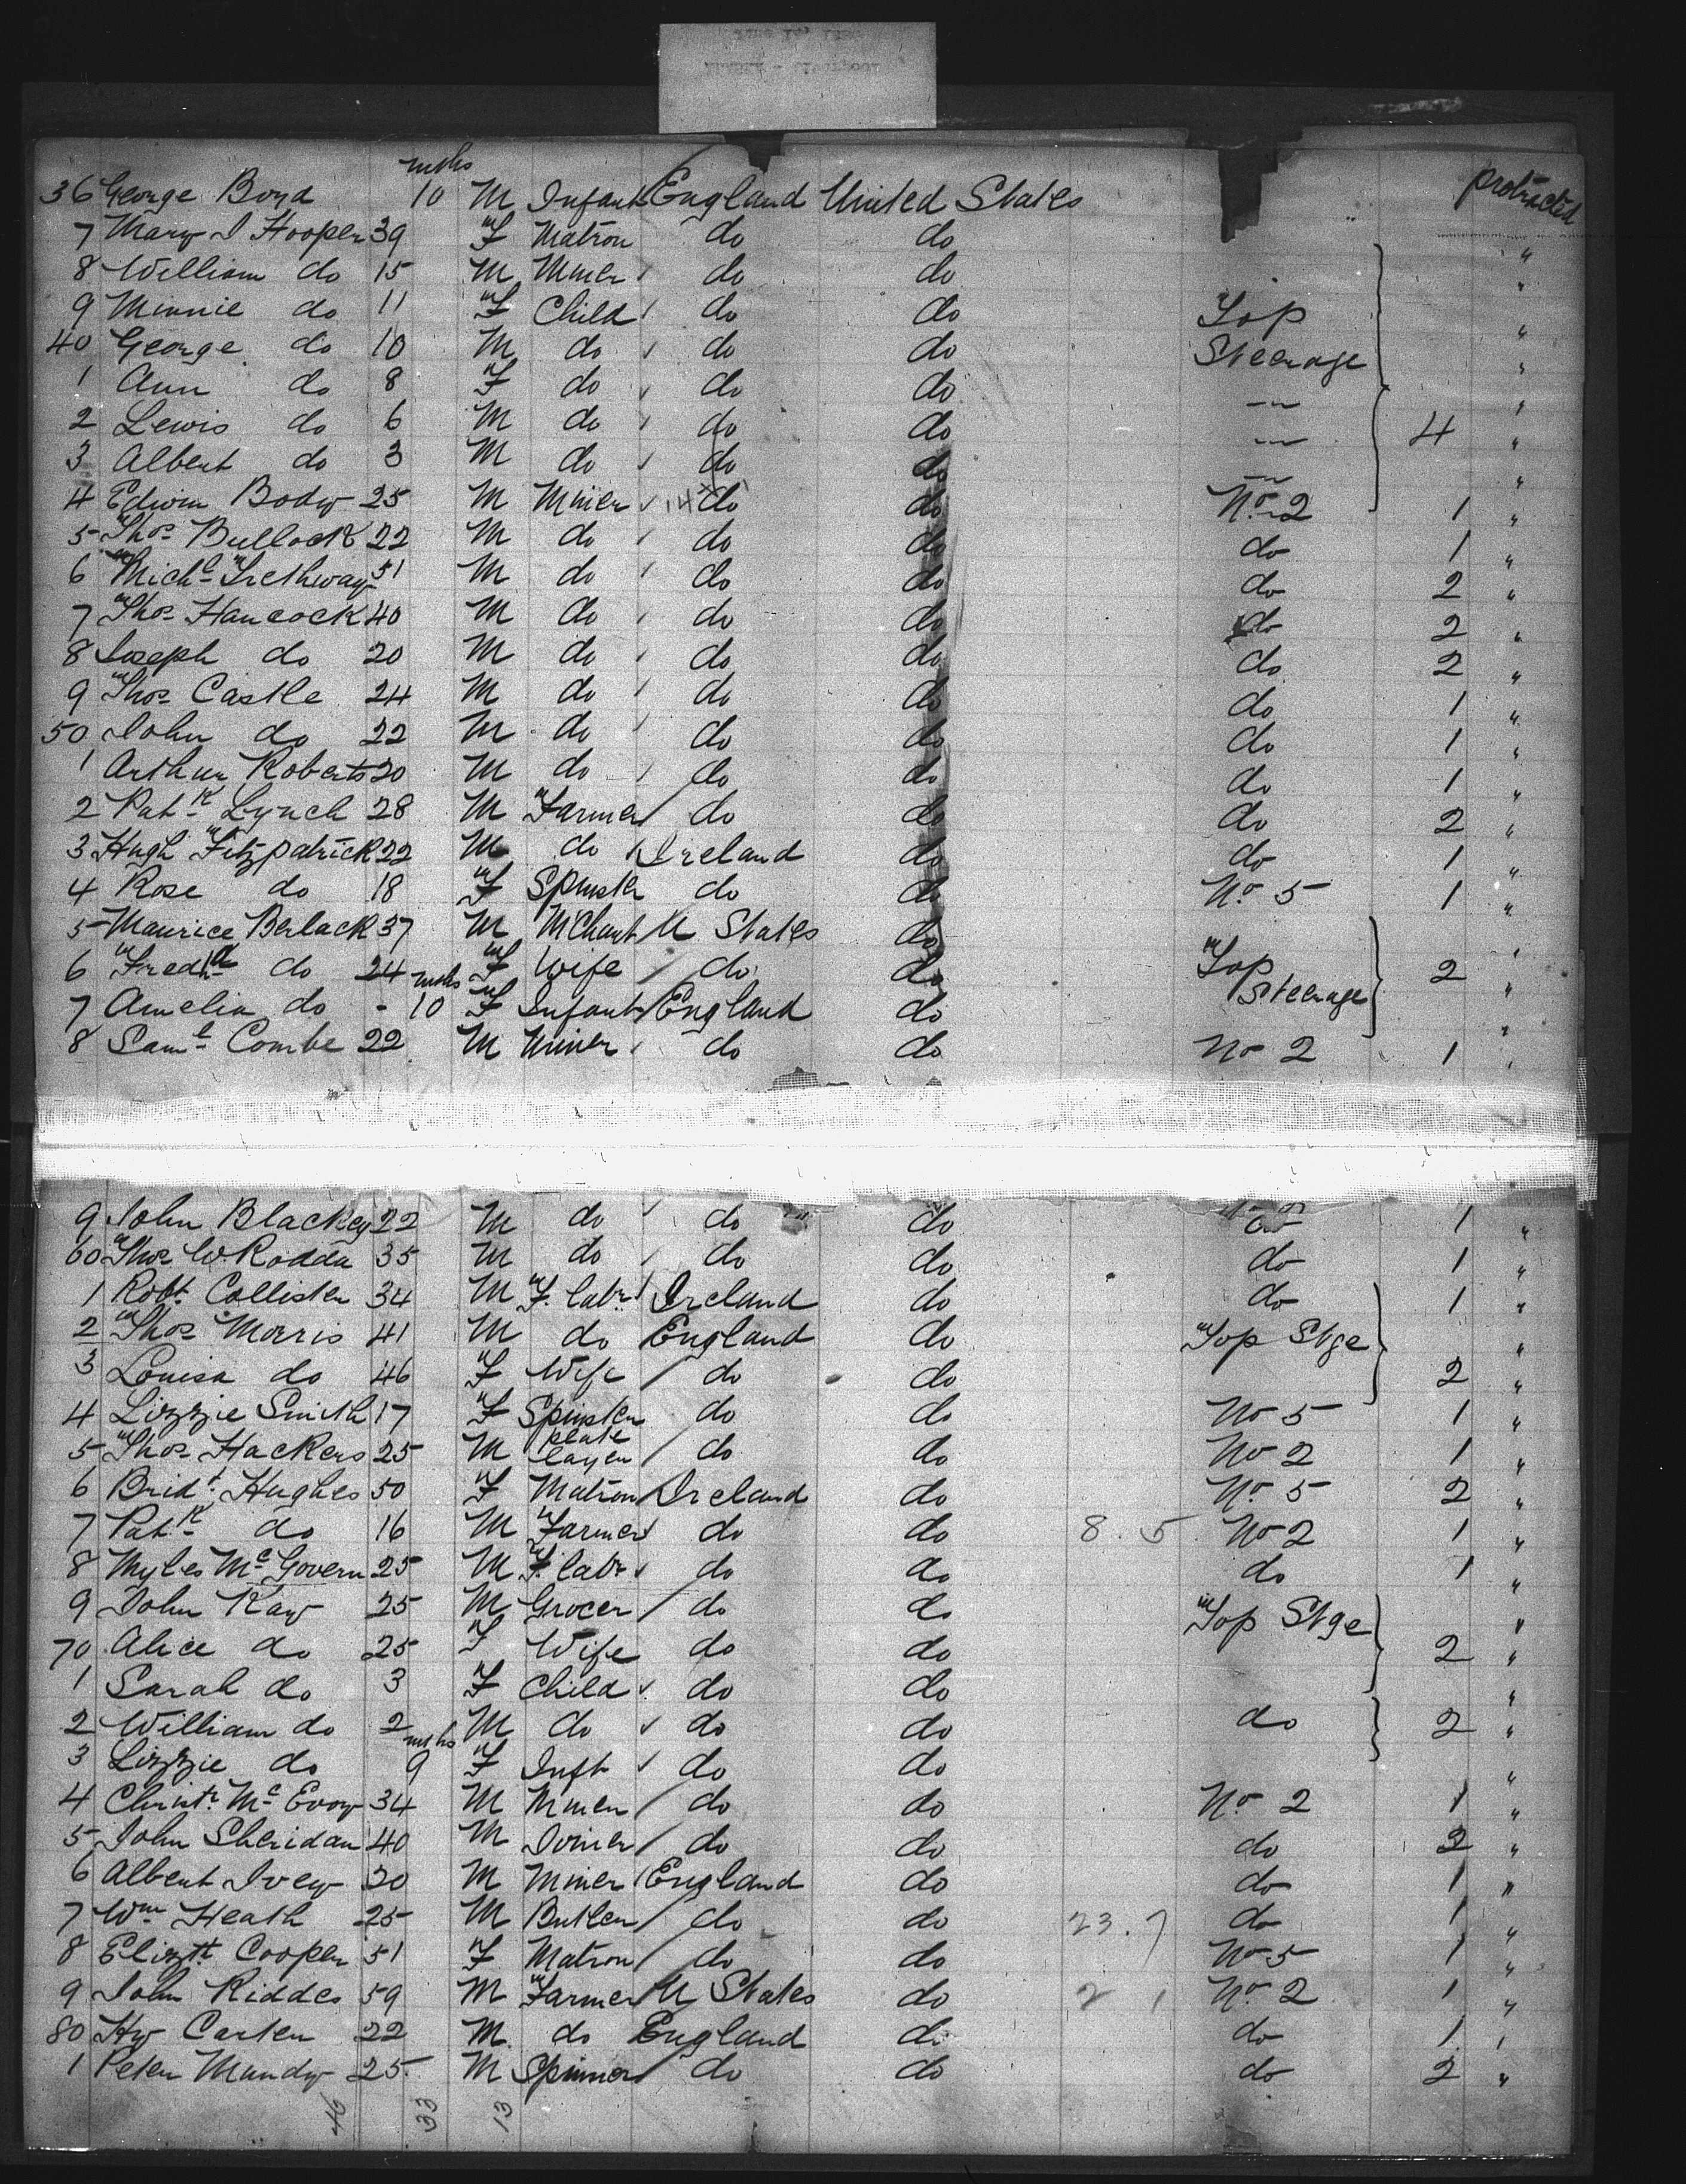 36 George Boyd 10 mths M Infant England United States protracted
7 Mary J Hooper 39 F Matron do do "
8 William do 15 M Miner do do "
9 Minnie do 11 F Child do do Top "
40 George do 10 M do do do Steerage "
1 Ann do 8 F do do do "
2 Lewis do 6 M do do do 4 "
3 Albert do 3 M do do do "
4 Edwin Body 25 M Miner 14 do do No 2 1 "
5 Thos Bullock 22 M do do do do 1 "
6 Michl Trethway 51 M do do do do 2 "
7 Thos Hancock 40 M do do do do 2 "
8 Joseph do 20 M do do do do 2 "
9 Thos Castle 24 M do do do do 1 "
50 John do 22 M do do do do 1 "
1 Arthur Roberts 20 M do do do do 1 "
2 Patk Lynch 28 M Farmer do do do 2 "
3 Hugh Fitzpatrick 22 M do Ireland do do 1 "
4 Rose do 18 F Spinster do do No 5 1 "
5 Maurice Berlack 37 M MChant U States do "
6 Fredka do 24 F Wife do do Top 2 "
7 Amelia do - 10 mths F Infant England do Steerage "
8 Saml Combe 22 M Miner do do No 2 1 "
9 John Blackey 22 M do do do do 1 "
60 Thos W. Rodda 35 M do do do do 1 "
1 Robt Collister 34 M F. labr Ireland do do 1 "
2 Thos Morris 41 M do England do Top Stge "
3 Louisa do 46 F Wife do do 2 "
4 Lizzie Smith 17 F Spinster do do No 5 1 "
5 Thos Hackers 25 M plate layer do do No 2 1 "
6 Bridt Hughes 50 F Matron Ireland do No 5 2 "
7 Patk do 16 M Farmer do do 8. 5 No 2 1 "
8 Myles McGovern 25 M F. labr do do do 1 "
9 John Kay 25 M Grocer do do Top Stge "
70 Alice do 25 F Wife do do 2 "
1 Sarah do 3 F Child do do "
2 William do 2 M do do do do 2 "
3 Lizzie do 9 mths F Inft do do "
4 Christr McEvoy 34 M Miner do do No 2 1 "
5 John Sheridan 40 M Joiner do do do 2 "
6 Albert Ivey 20 M Miner England do do 1 "
7 Wm Heath 25 M Butler do do 23. 7 do 1 "
8 Elizth Cooper 51 F Matron do do No 5 1 "
9 John Kiddes 59 M Farmer U States do 2 1 No 2 1 "
80 Hy Carter 22 M do England do do 1 "
1 Peter Mundy 25 M Spinner do do do 2 "
46 33 13